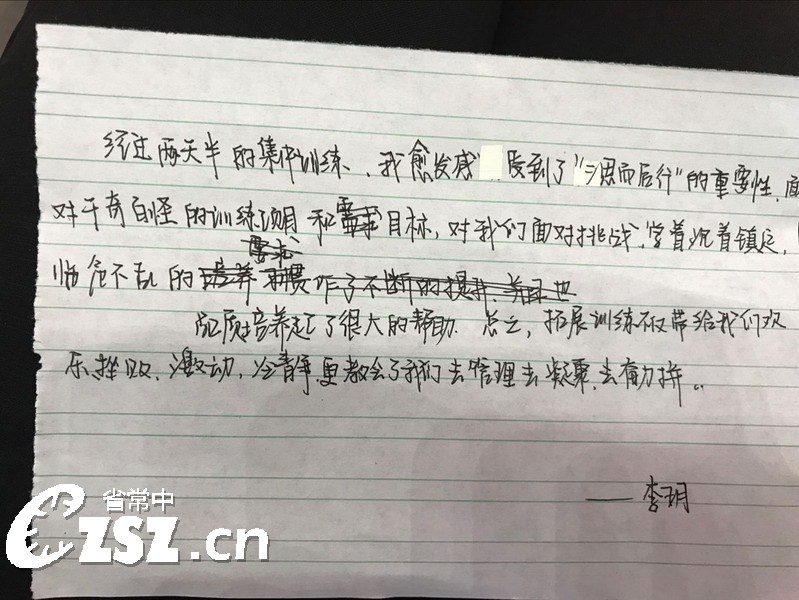 经过两天半的集中训练，我愈发感 受到了“三思而后行”的重要性，面
对千奇百怪的训练项目和目标，对我们面对挑战，学着沉着镇定，
临危不乱的
品质培养起了很大的帮助．总之，拓展训练不仅带给我们欢
乐、挫败、激动，冷静，更教会了我们去管理去凝聚，去奋力拼..
——李玥
省常中
CZSZ.cn